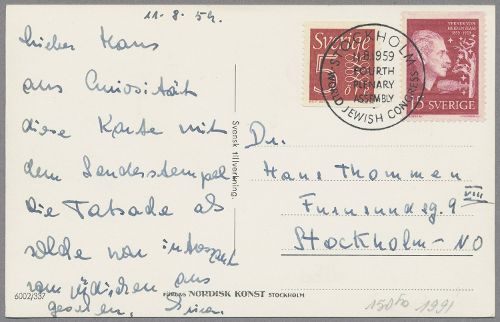 11. 8. 59.
Lieber Hans
als Curiosität
diese Karte mit
dem Sonderstempel
Die Tatsache als
solche von
vom jüdischen aus
gesehen.
Sverige
5
STOCKHOLM
11.8.1959
FOURTH
PLENARY
ASSEMBLY
WORLD JEWISH CONGRESS
VERNER VON
HEIDENSTAM
1859-1959
15 SVERIGE
Svensk tillverkning.
Dr.
Hans Thommen
Furusundsg. 9 VIII
Stockholm - NO
6002/337
FÖRLAG NORDISK KONST STOCKHOLM
1991